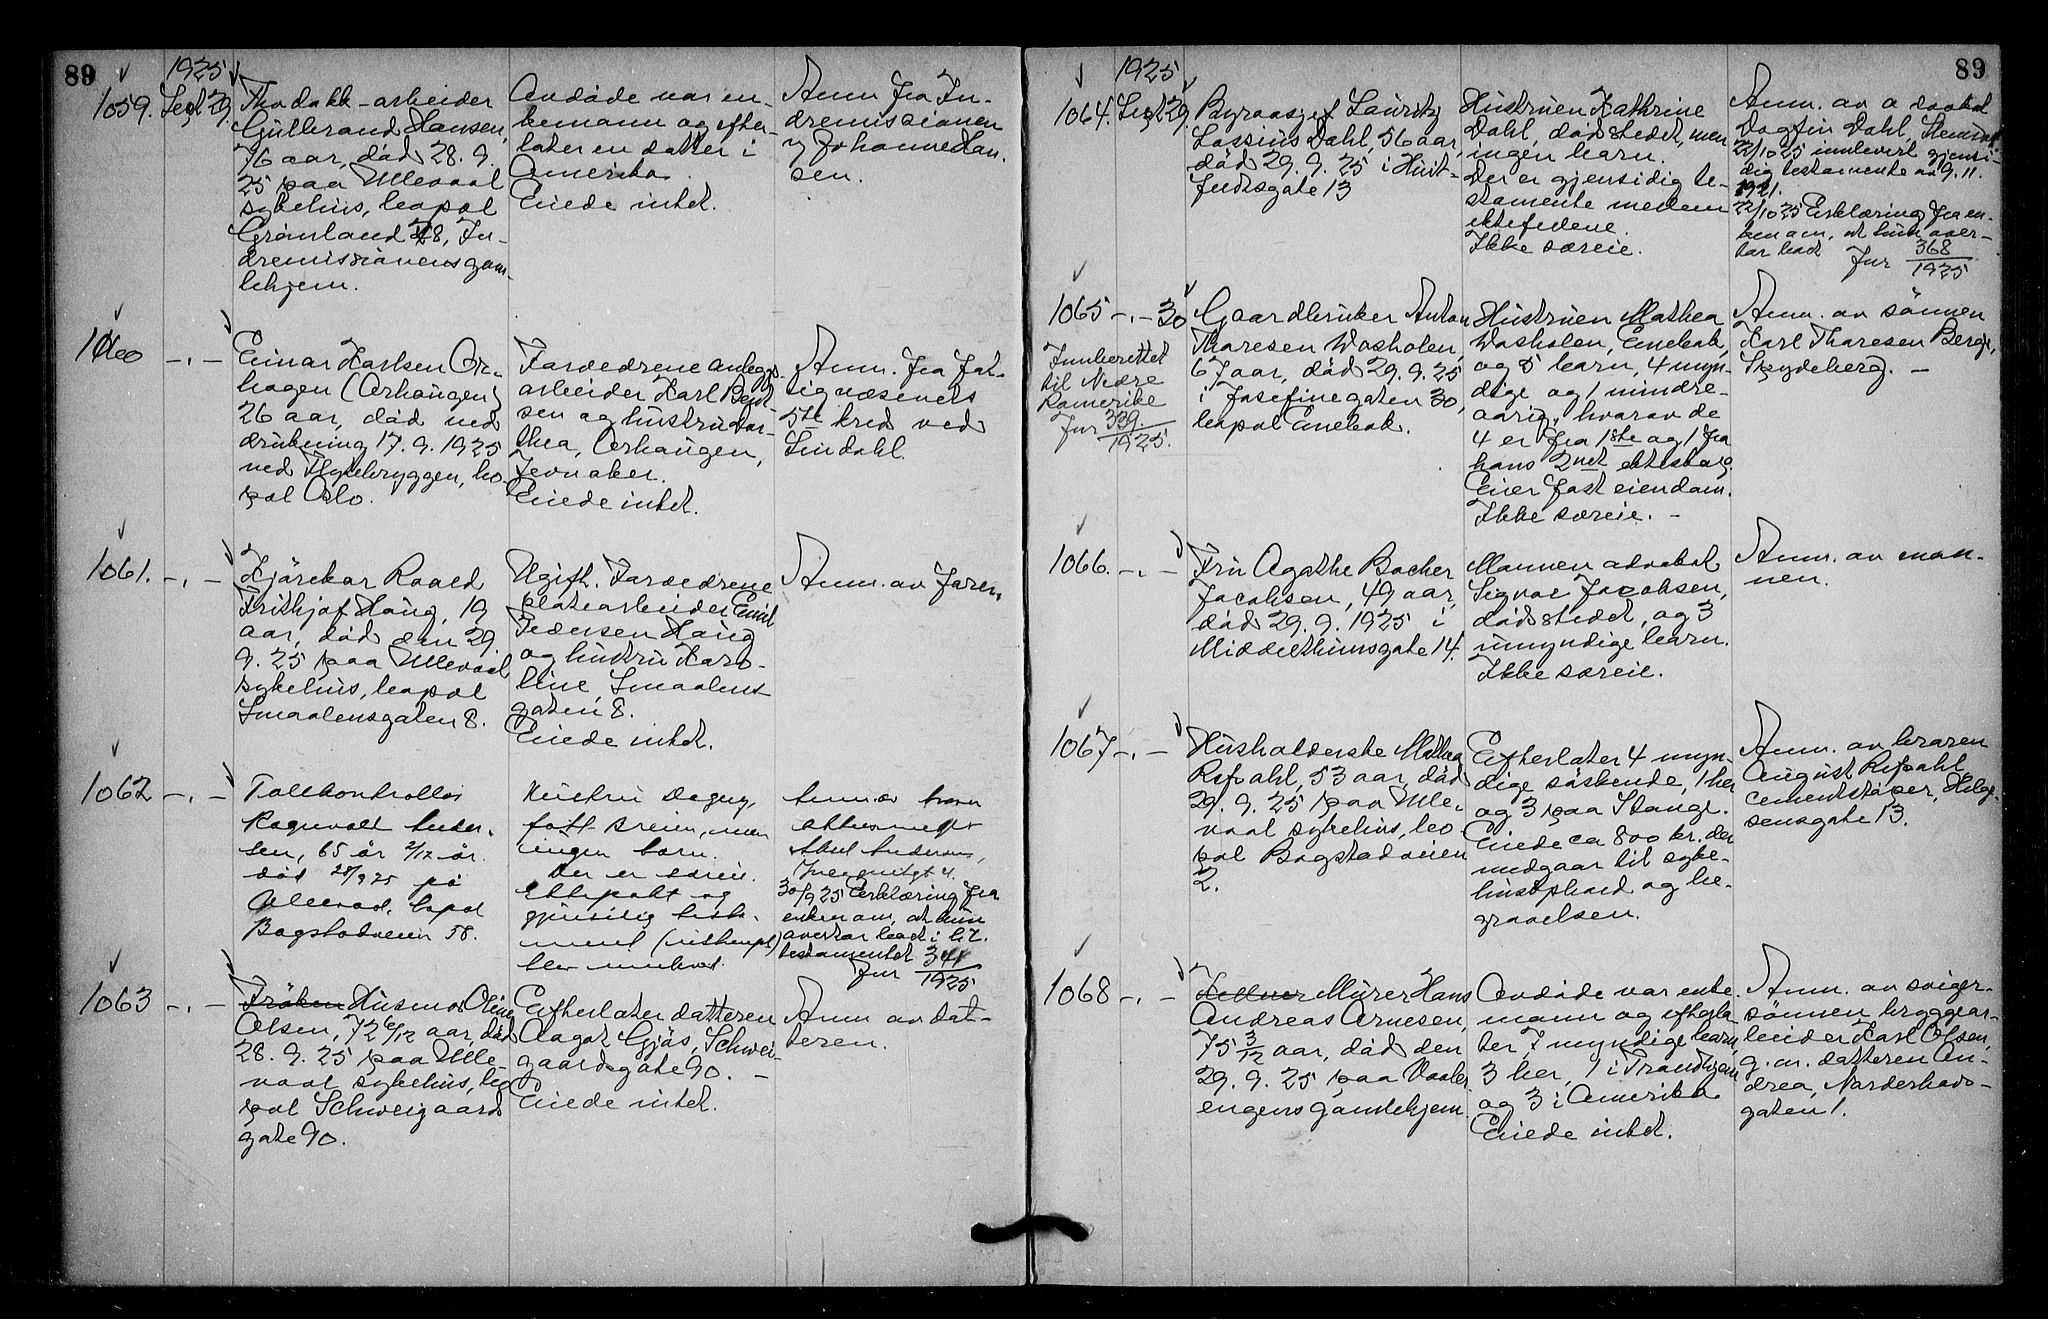 89
1925
1059. Sept 29.
Tobakk-arbeider
Gulbrand Hansen,
76 aar, död 28. 9.
25 paa Ullevaal
sykehus, bopæl
Grønland 28, In-
dremissionens gam-
lehjem.
Avdöde var en-
kemann og efter-
later en datter i
Amerika.
Eiede intet.
Anm fra In-
dremissionen
v Johanne Han-
sen.
1060 -.-
Einar Karlsen Or-
hagen (Aarhaugen)
26 aar, död ved
drukning 17. 9. 1925
ved Flytebryggen, bo-
pæl Oslo.
Forældrene anlegs-
arbeider Karl Bent-
sen og hustru Dor-
thea, Aarhaugen,
Jevnaker.
Eiede intet.
Anm. fra Fat-
tigvæsenets
5te kred ved
Lindahl.
1061. -.-
Kjörekar Roald
Frithjof Haug, 19
aar, död den 29.
9. 25 paa Ullevaal
sykehus, bopæl
Smaalensgaten 8.
Ugift. Forældrene
platearbeider Emil
Pedersen Haug
og hustru Karo-
line, Smaalens-
gaten 8.
Eiede intet.
Anm. av faren
1062 -.-
Tollkontrollör
Ragnvald Ander-
sen, 65 år 2/12 år.
död 28/9 25 på
Ullevaal, bopæl
Bogstadveien 58.
Hustru Dagny,
født men
ingen barn.
Der er særeie.
Ektepakt og
gjensidig testa-
ment
blev innlevert.
Anm av
Axel Andersen,
30/9 25 Erklæring fra
enken om, at hun
overtar boet i h.t.
testamentet
Jnr 341/1925
1063 -.-
Fröken Husmor Oline
Olsen, 72 6/12 aar, död
28. 9. 25 paa Ulle-
vaal sykehus, bo-
pæl Schweigaards
gate 90.
Efterlater datteren
Aagot Gjøs, Schwei-
gaardsgate 90. -
Eiede intet.
Anm av dat-
teren.
89
1925
1064. Sept 29.
Byraasjef Lauritz
Lossius Dahl, 56 aar,
död 29. 9. 25 i Huit-
feldtsgate 13
Hustruen Kathrine
Dahl, dödsstedet, men
ingen barn.
Der er gjensidig te-
stamente mellem
ektefellene.
Ikke særeie.
Anm. av advokat
Dagfin Dahl,
22/10 25 innlevert gjensi-
dig testamente av 9. 11.
1921.
22/10 25 Erklæring fra en-
ken om, at hun over-
tar boet Jnr 368/1925
1065 -.- 30
Innberettet
til Nedre
Romerike
Jnr 339/1925.
Gaardbruker Anton
Thoresen Vasholen,
67 aar, död 29. 9. 25
i Josefinegaten 30,
bopæl Enebak.
Hustruen Mathea
Vasholen, Enebak,
og 5 barn, 4 myn-
dige og 1 mindre-
aarig, hvorav de
4 er fra 1ste og 1 fra
hans 2net ektesk­ap.
Eier fast eiendom.
Ikke særeie. -
Anm. av sönnen
Karl Thoresen Berge,
Spydeberg. -
1066. -.-
Fru Agathe Backer
Jacobsen, 49 aar,
död 29. 9. 1925 i
Middelthunsgate 14.
Mannen advokat
Sigval Jacobsen,
dödsstedet, og 3
umyndige barn.
Ikke særeie.
Anm. av man-
nen.
1067 -.-
Husholderske Mathea
Refsahl, 53 aar, död
29. 9. 25 paa Ulle-
vaal sykehus, bo
pæl Bogstadveien
2.
Efterlater 4 myn-
dige söskende, 1 her
og 3 paa Stange.
Eiede ca 800 kr. der
medgaar til syke-
husophold og be-
gravelsen.
Anm. av broren
August Refsahl
cementstöper, Helge-
sensgate 13.
1068 -.-
Fellner Murer Hans
Andreas Arnesen,
75 3/12 aar, död den
29. 9. 25 paa Vaaler-
engens gamlehjem.
Avdöde var enke-
mann og efterla-
ter 7 myndige barn,
3 her, 1 i Trondhjem
og 3 i Amerika
Eiede intet.
Anm. av sviger-
sönnen bryggear-
beider Karl Olsen,
g. m. datteren An-
drea, Norderhovs-
gaten 1.